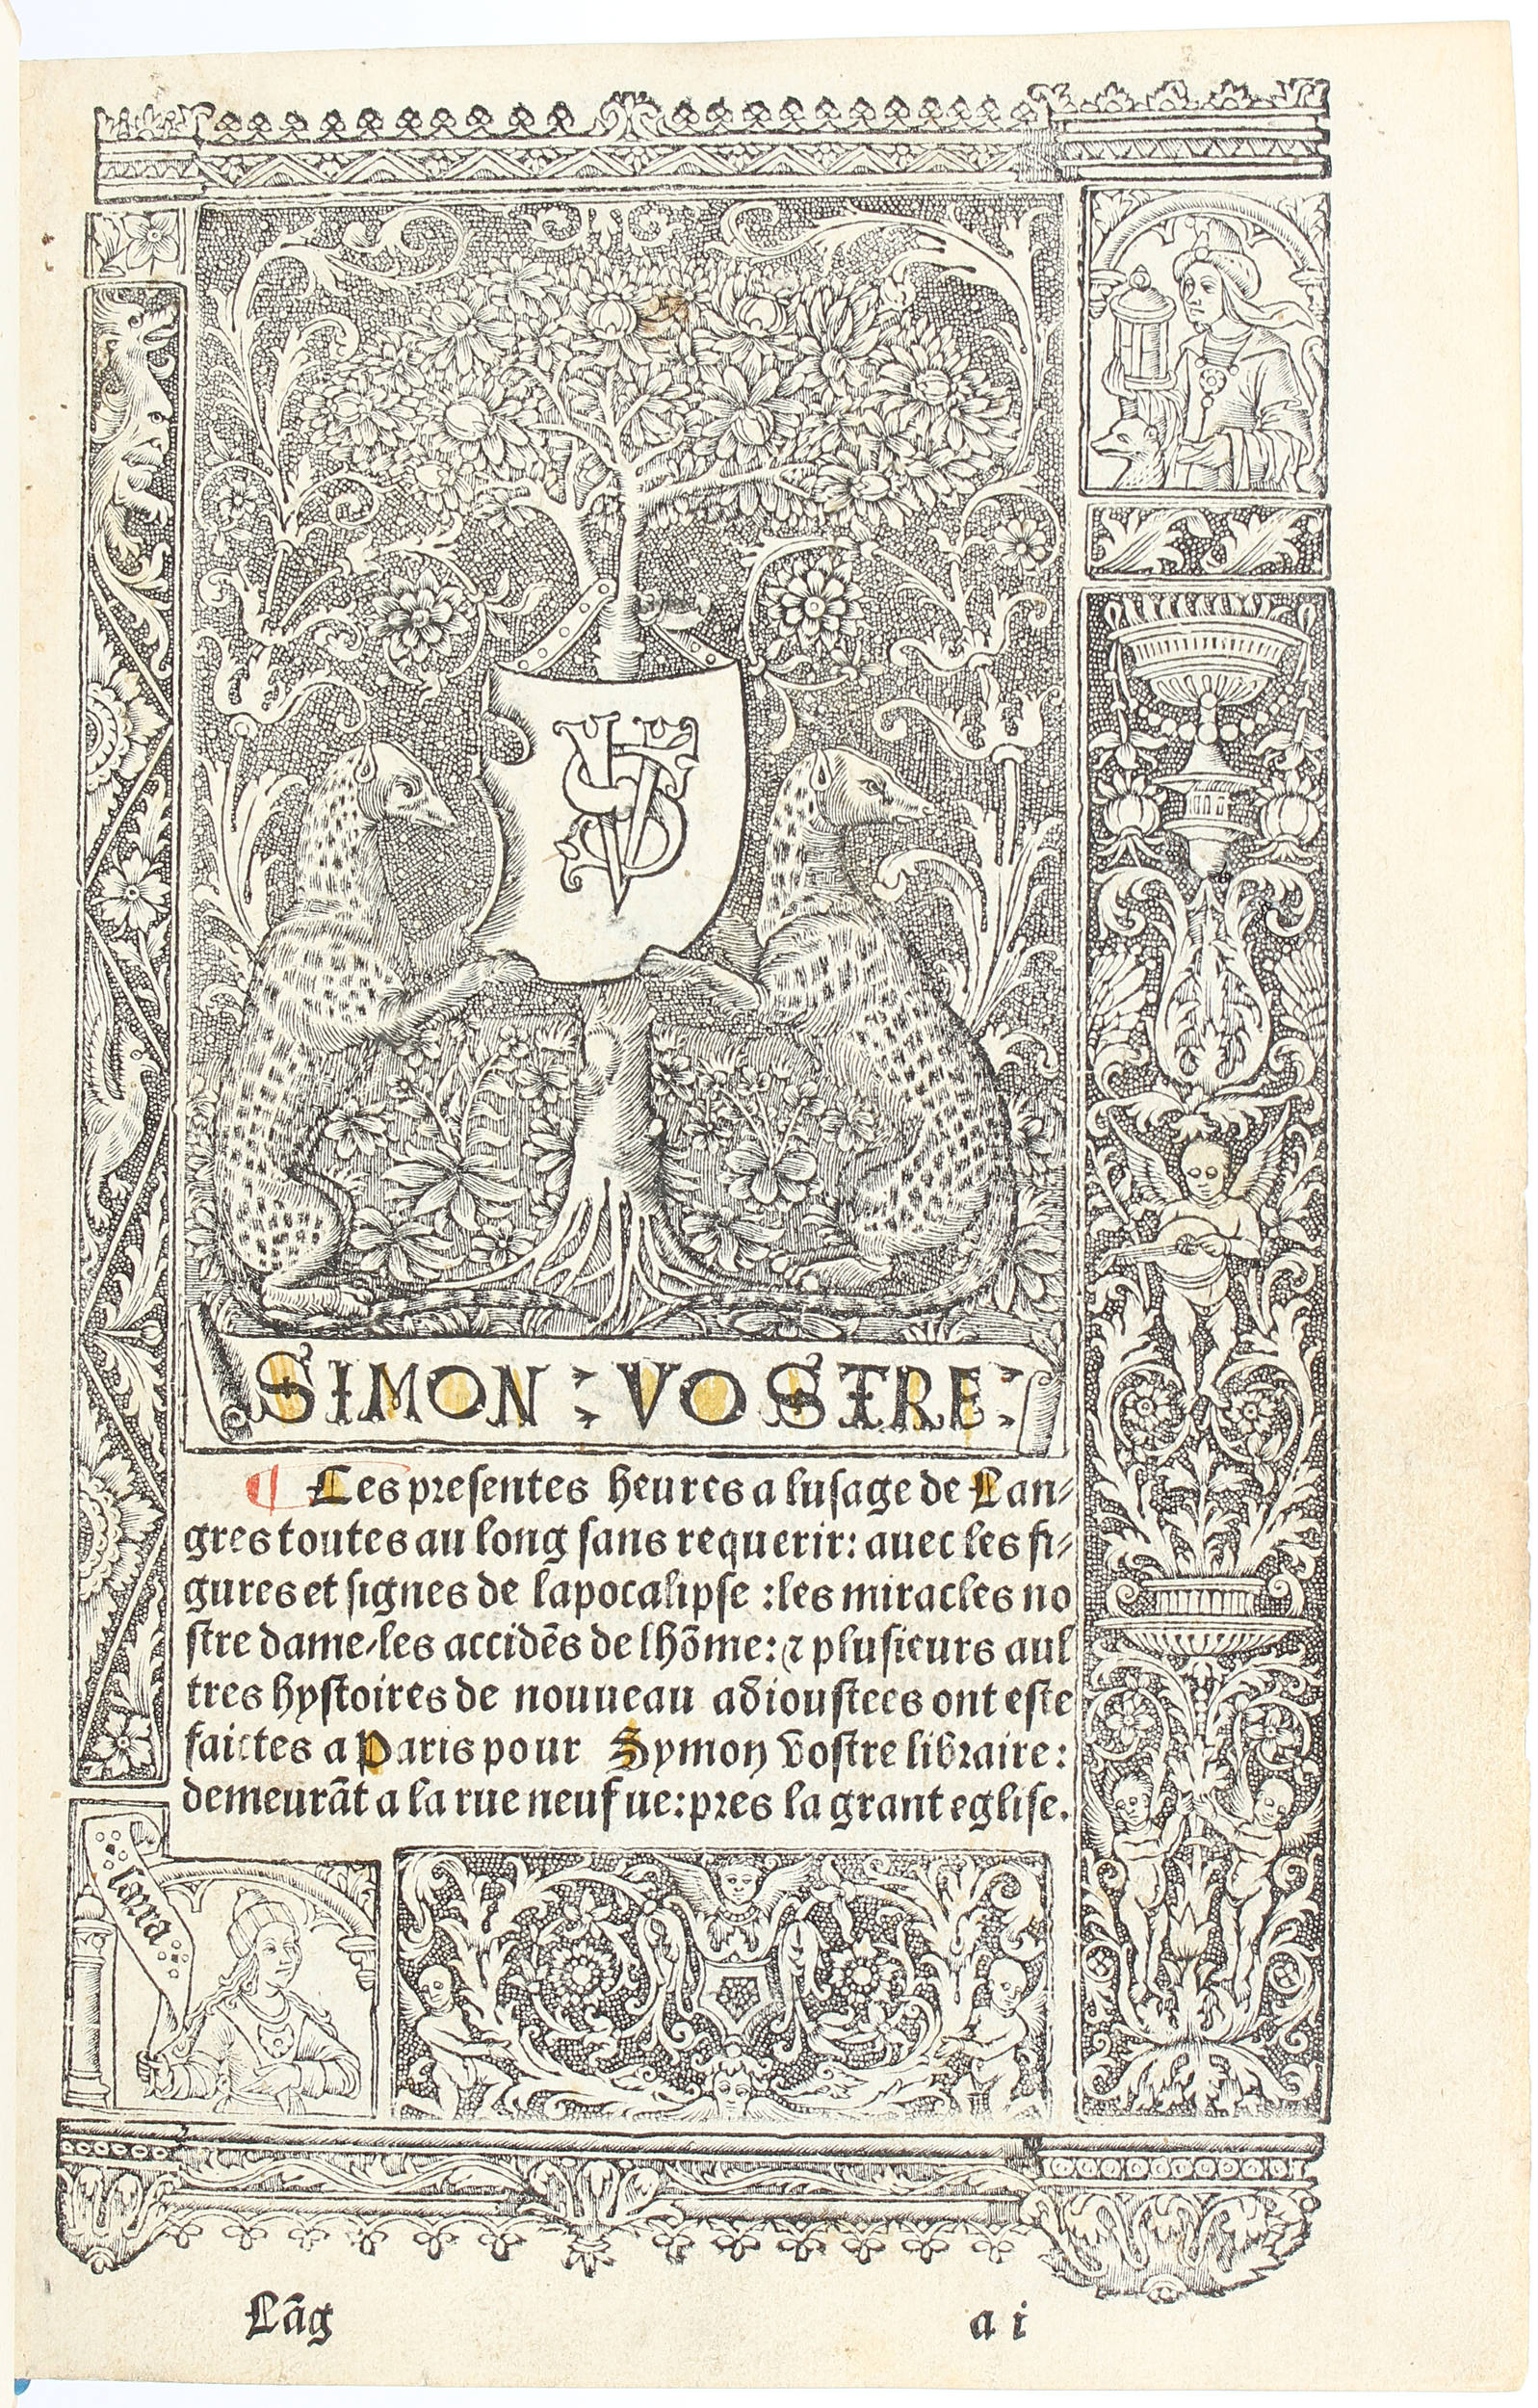 SV
SIMON : VOSTRE :
¶ Les presentes heures a lusage de Lan-
gres toutes au long sans requerir: auec les fi-
gures et signes de lapocalipse : les miracles no
stre dame/les accidẽs de lhõme: ⁊ plusieurs aul
tres hystoires de nouueau adioustees ont este
faictes a Paris pour Symon Vostre libraire:
demeurãt a la rue neufue: pres la grant eglise.
Lãg
a i